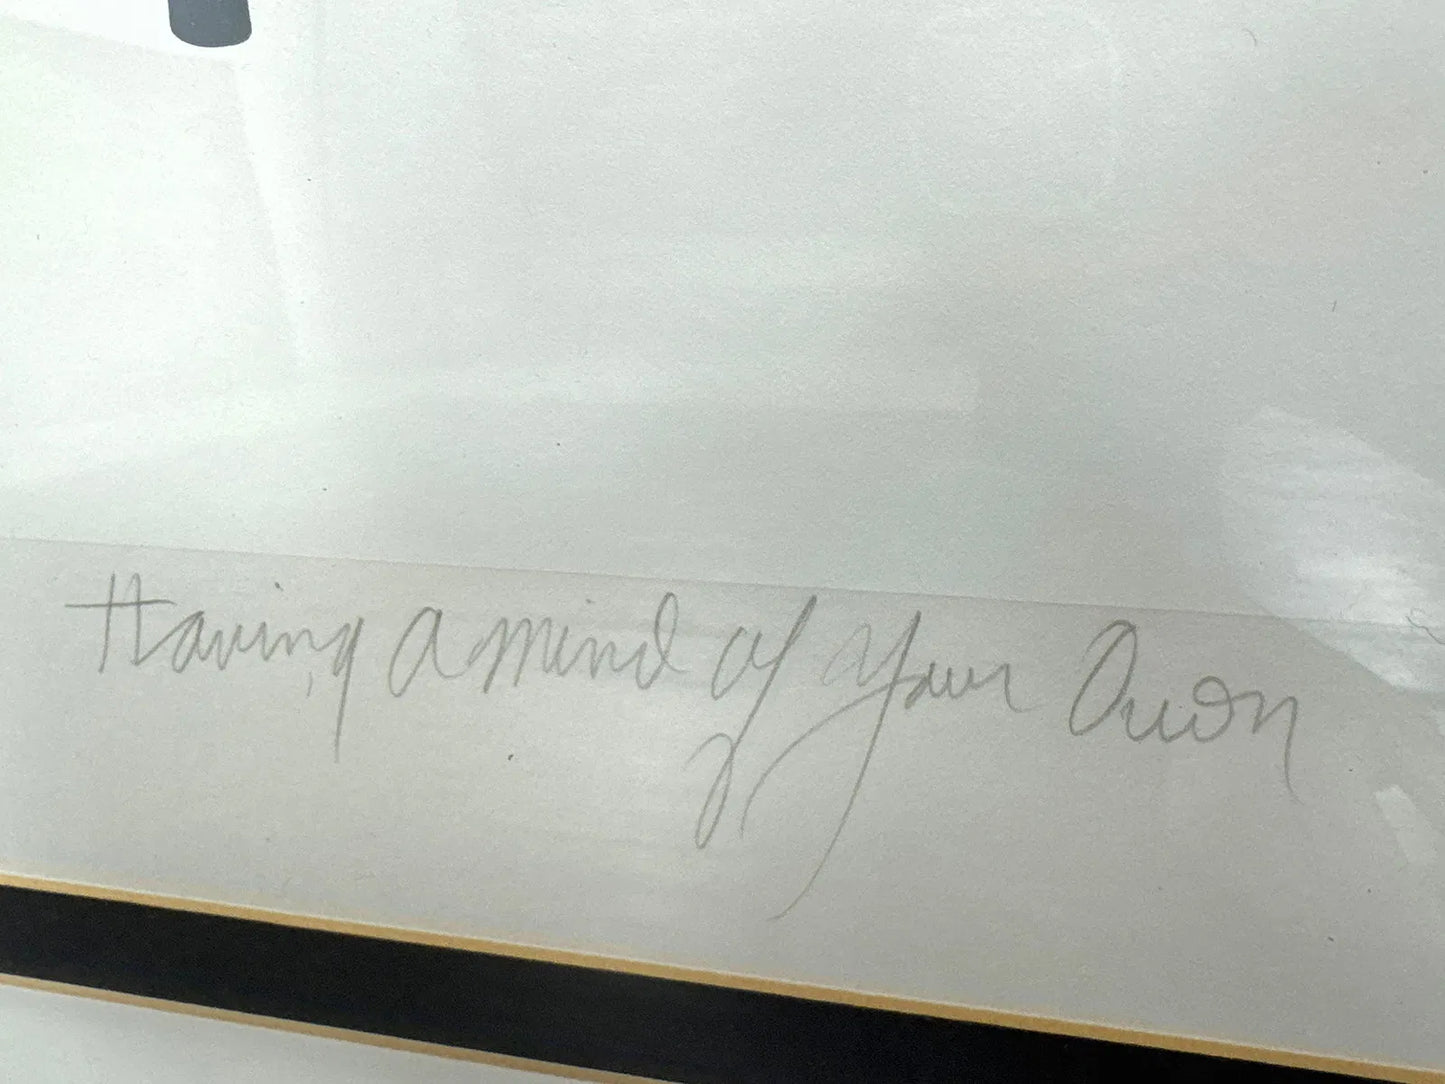 Having A Mind of Your Own